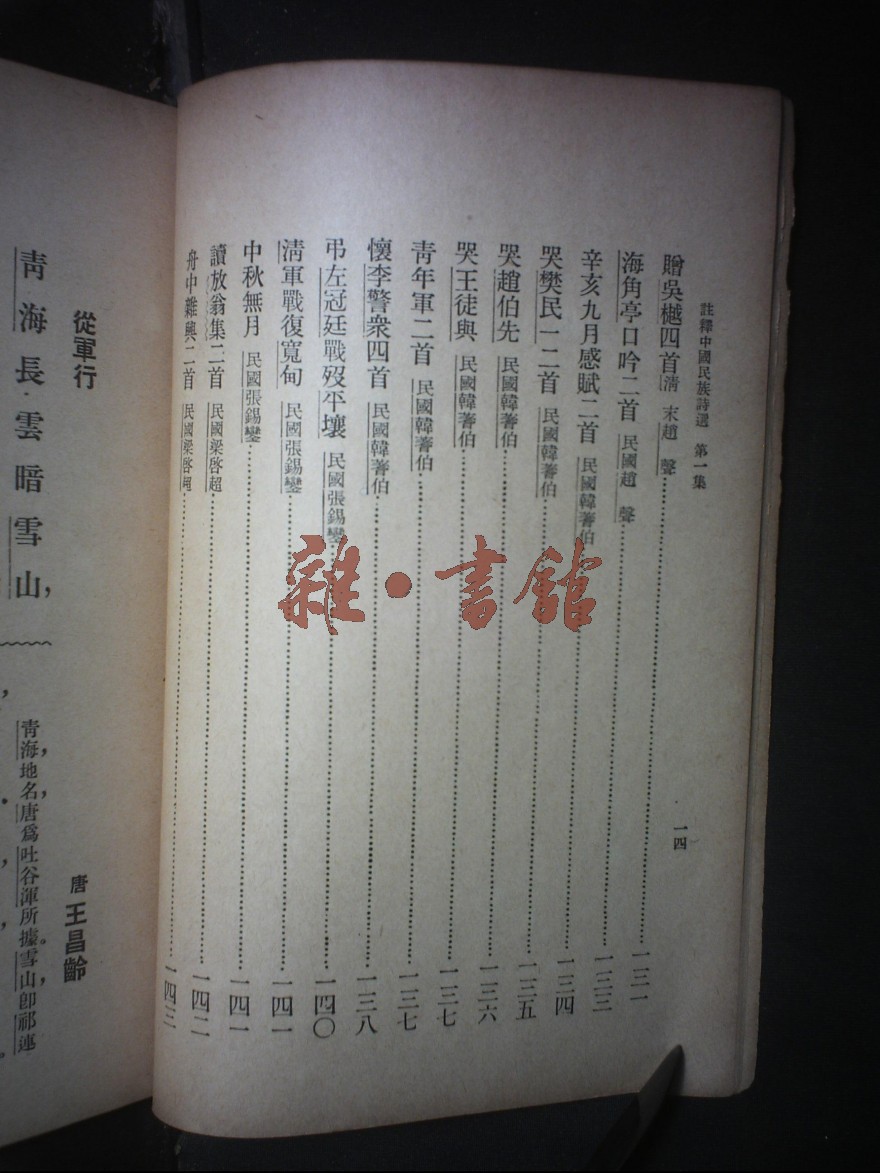 註釋中國民族詩選 第一集
一四
贈吳樾四首 清末趙聲 一三一
海角亭口吟二首 民國趙聲 一三三
辛亥九月感賦二首 民國韓蓍伯 一三四
哭樊民一二首 民國韓蓍伯 一三五
哭趙伯先 民國韓蓍伯 一三六
哭王徒與 民國韓蓍伯 一三七
青年軍二首 民國韓蓍伯 一三七
懷李警衆四首 民國韓蓍伯 一三八
弔左冠廷戰歿平壤 民國張錫鑾 一四〇
清軍戰復寬甸 民國張錫鑾 一四一
中秋無月 民國張錫鑾 一四一
讀放翁集二首 民國梁啓超 一四二
舟中雜興二首 民國梁啓超 一四三
雜·書館
從軍行
唐 王昌齡
青海長雲暗雪山，
青海，地名，唐爲吐谷渾所據。雪山，卽祁連